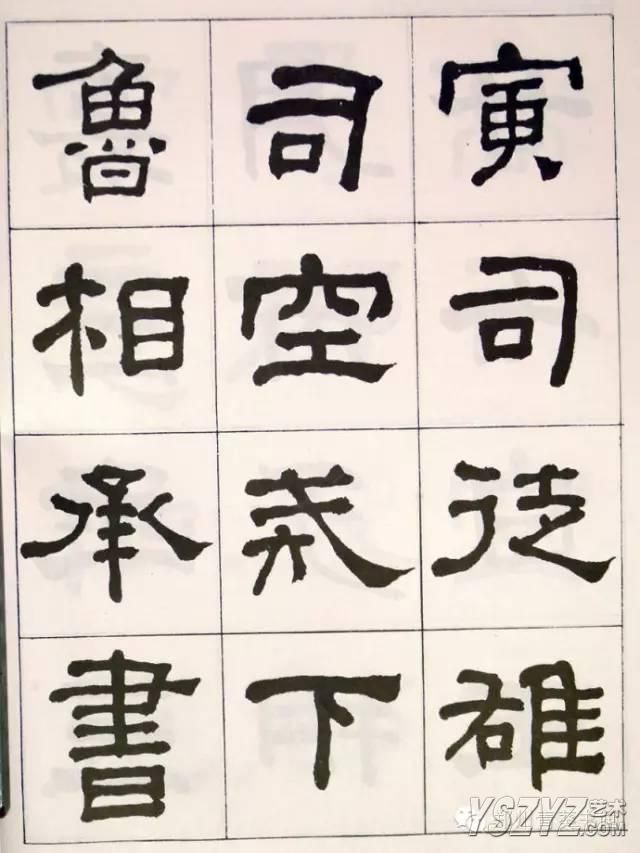 寅司徒雄
司空戒下
魯相承書
YSZYZ艺术
.COM